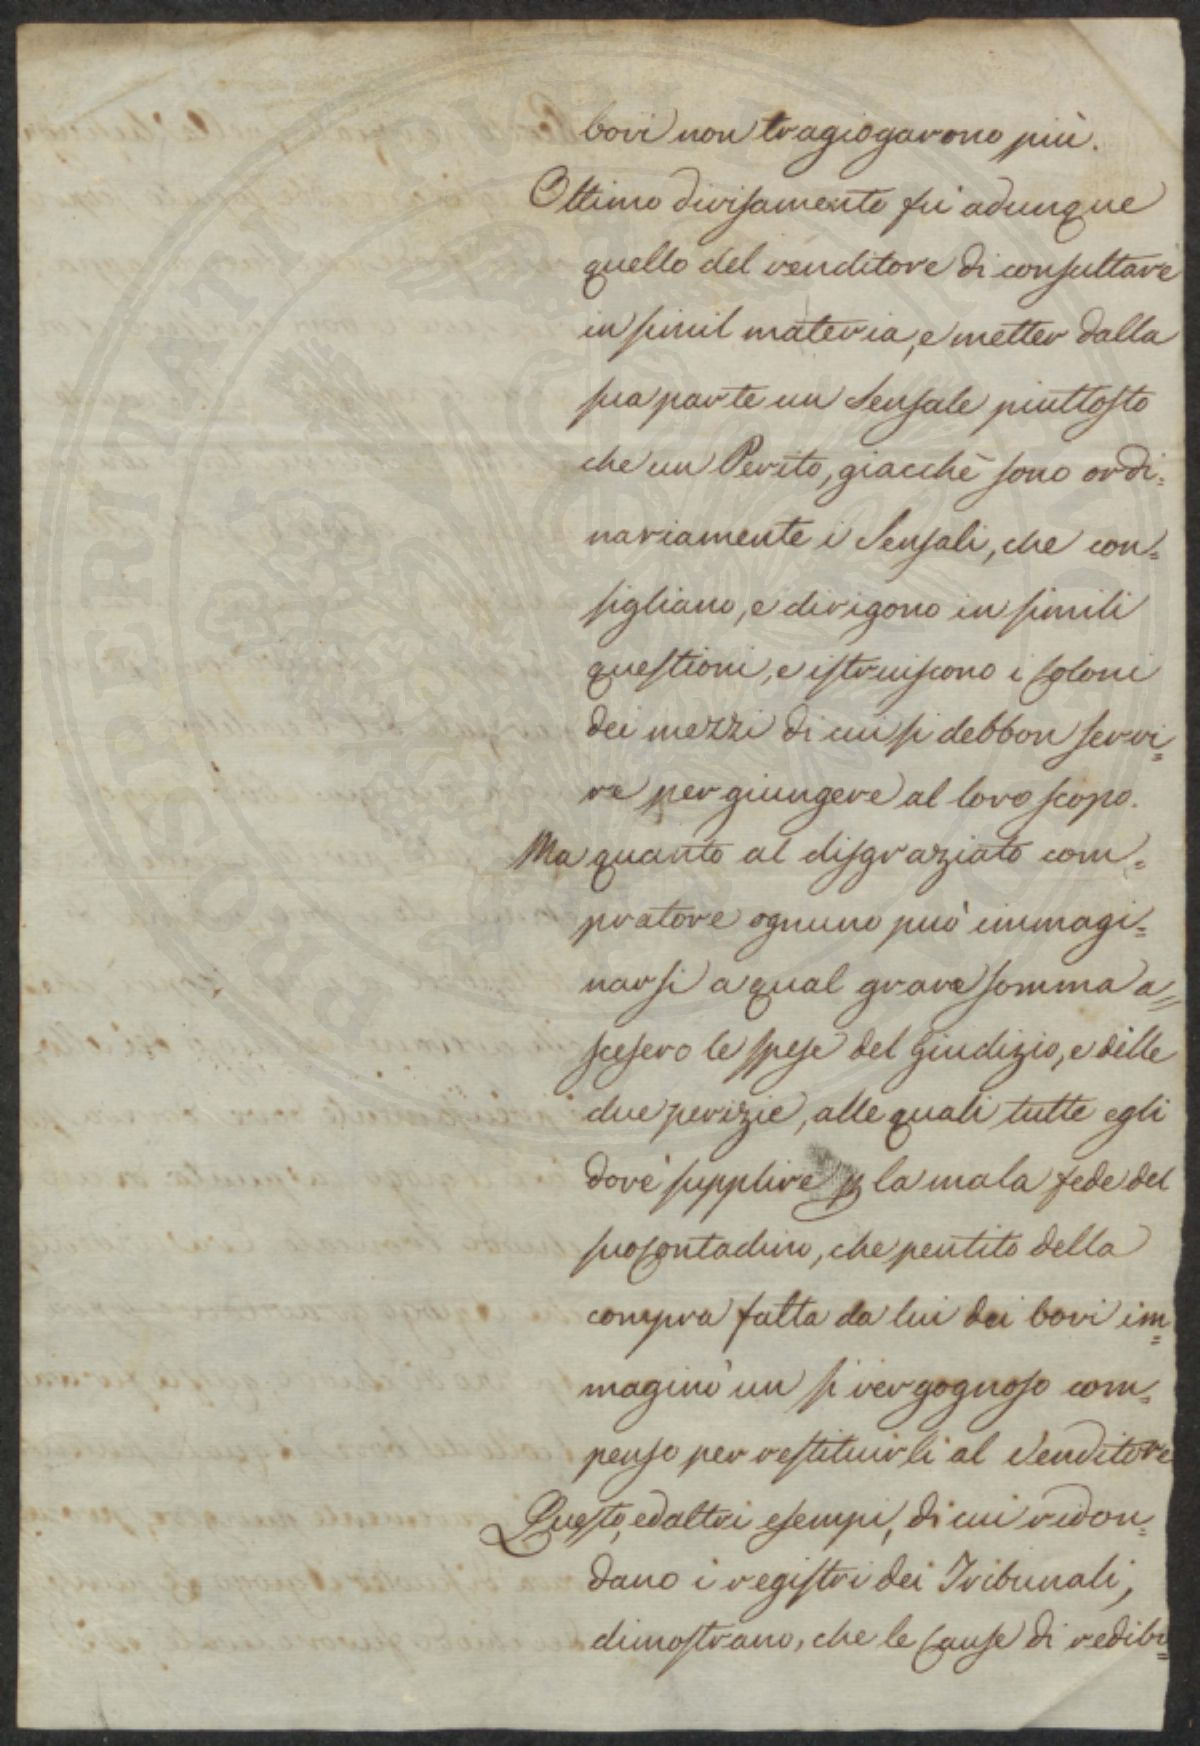 bovi non tragiogarono più.
Ottimo divisamento fù adunque
quello del venditore di consultare
in simil materia, e metter dalla
sua parte un Sensale piuttosto
che un Perito, giacchè sono ordi=
nariamente i Sensali, che con=
sigliano, e dirigono in simili
questioni, e istruiscono i Coloni
dei mezzi di cui si debbon servi=
re per giungere al loro scopo.
Ma quanto al disgraziato com=
pratore ognuno può immagi=
narsi a qual grave somma a=
scesero le spese del Giudizio, e delle
due perizie, alle quali tutte egli
dovè supplire p la mala fede del
suo Contadino, che pentito della
compra fatta da lui dei bovi im=
maginò un sì vergognoso com=
penso per restituirli al Venditore
Questo, ed altri esempi, di cui ridon=
dano i registri dei Tribunali,
dimostrano, che le Cause di redibi=
PROSPERITATI PUBLICAE